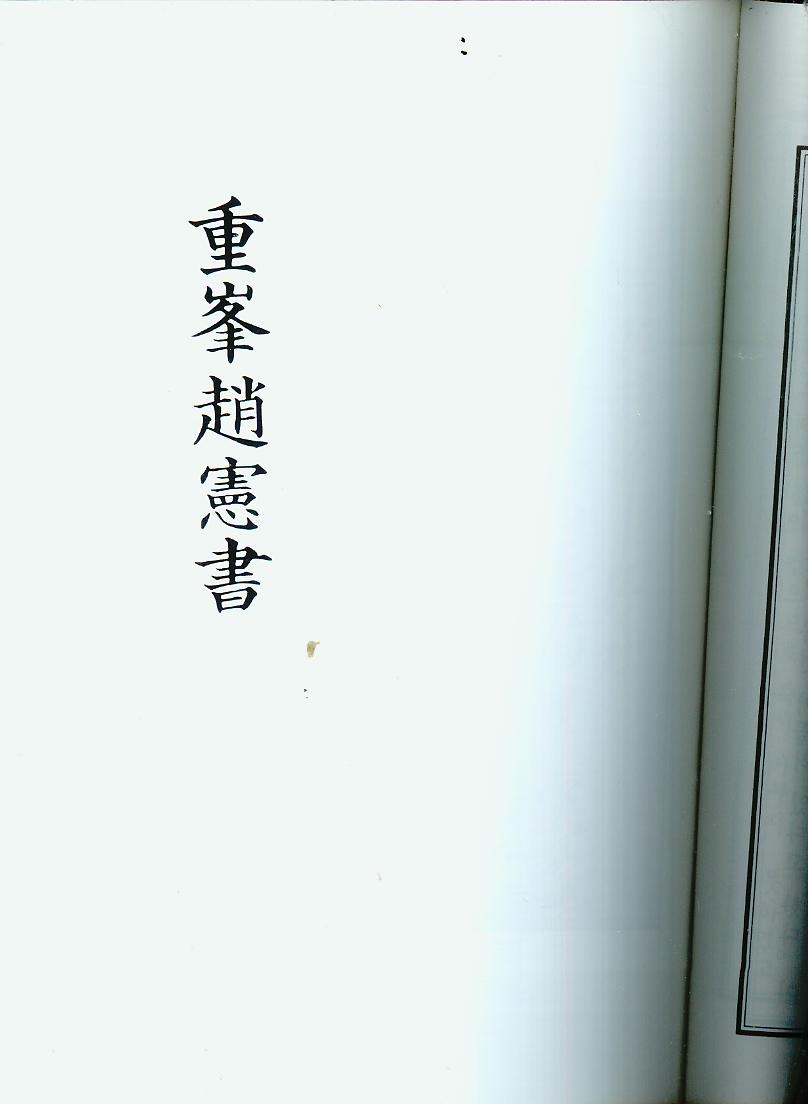 重峯趙憲書